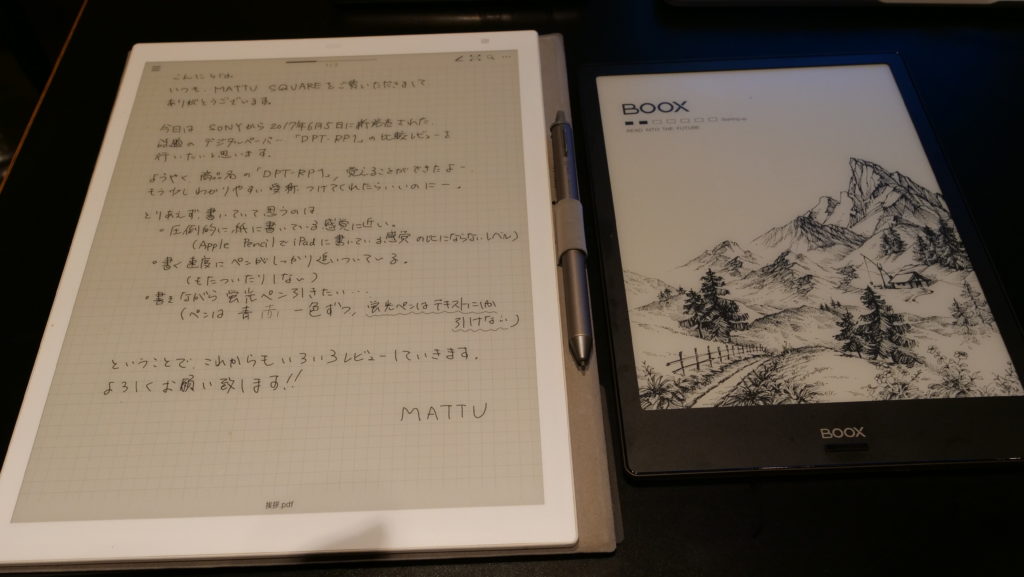 1/3
こんにちは
いつも、MATTU SQUAREをご覧いただきまして
ありがとうございます。
今日は SONYから2017年6月5日に新発売された
話題の デジタルペーパー「DPT-RP1」の比較レビューを
行いたいと思います。
ようやく 商品名の「DPT-RP1」覚えることができたよー.
もう少しわかりやすい愛称 つけてくれたらいいのにー.
とりあえず、書いていて思うのは
・圧倒的に紙に書いている感覚に近い。
(Apple Pencilで iPadに書いている感覚の比にならないレベル)
・書く速度に ペンがしっかり追いついている。
(もたついたりしない)
・書きながら 蛍光ペン引きたい…
(ペンは 青 赤 一色ずつ, 蛍光ペンはテキストにしか
引けない)
ということで、これからもいろいろレビューしていきます。
よろしくお願い致します!!
MATTU
挨拶.pdf
BOOX
READ INTO THE FUTURE
BOOX